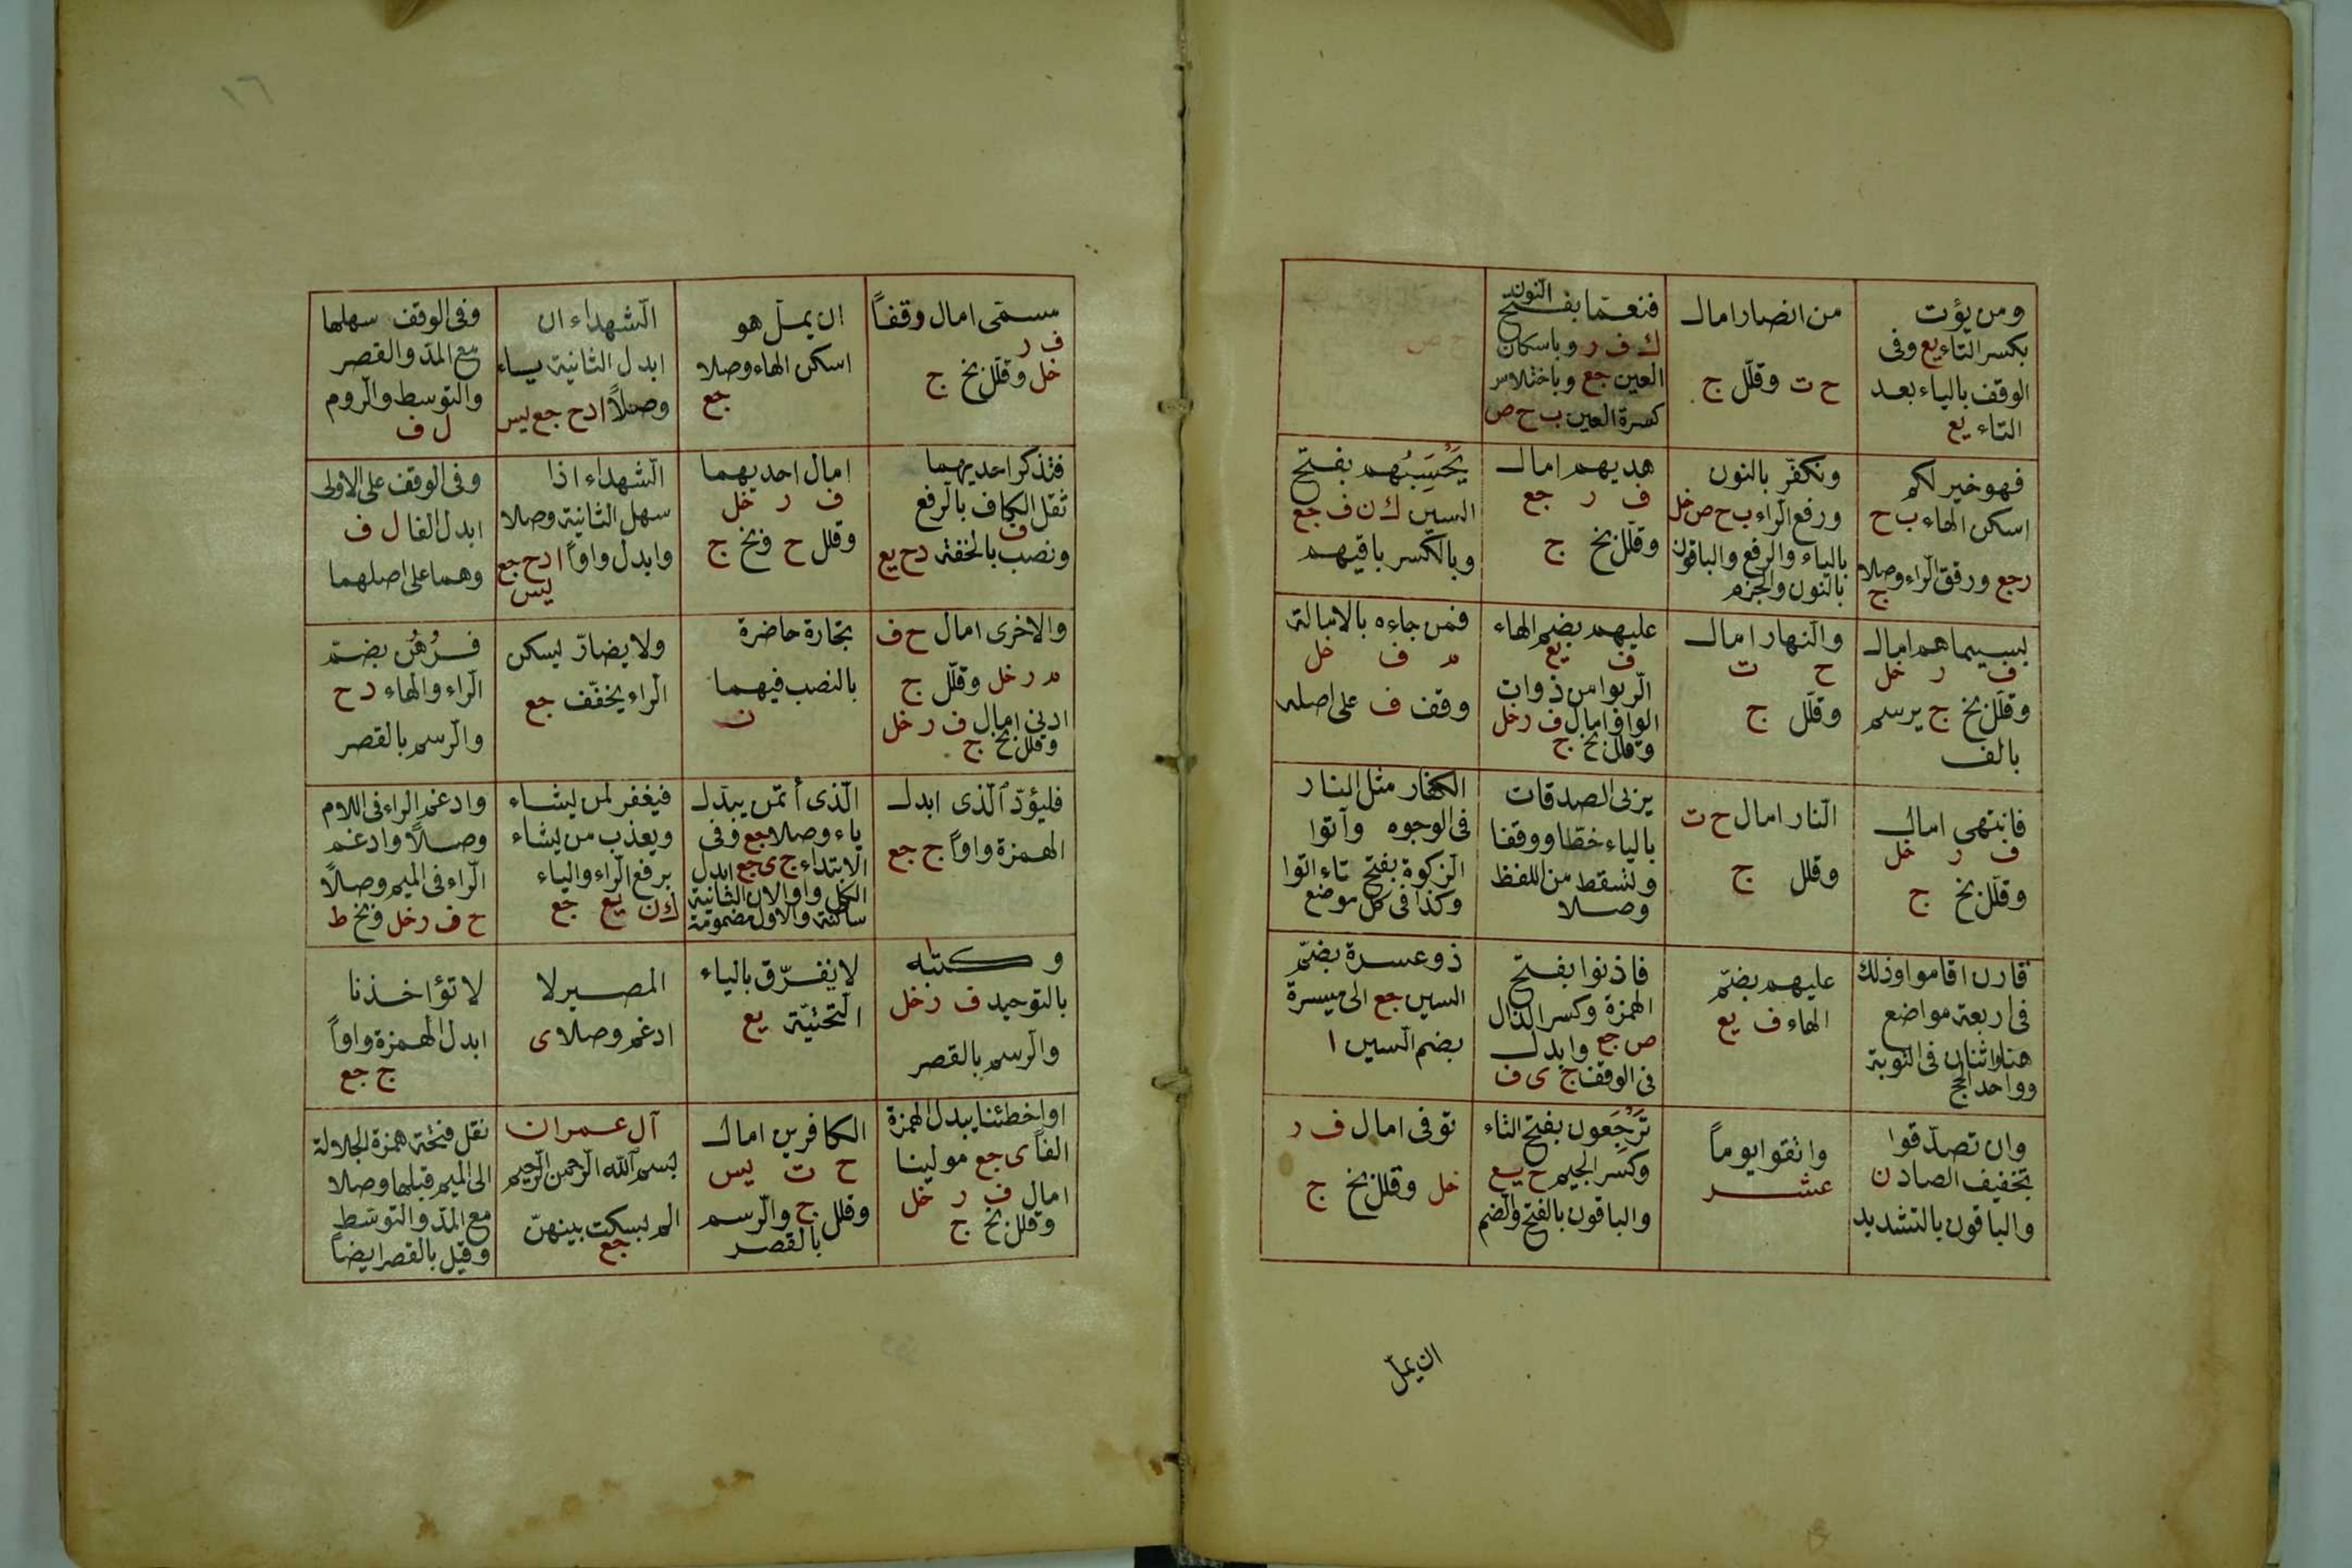 ومن يؤت
بكسر التاء يع وفى
الوقف بالياء بعد
التاء يع
من انصار امال
ح ت وقلّل ج
فنعمّا بفتح النون
ك ف ر وباسكان
العين جع وباختلاس
كسرة العين ب ح ص
فهو خير لكم
اسكن الهاء ب ح
ر جع ورقق الراء وصلا
ج
ونكفّر بالنون
ورفع الراء ب ح ص خل
بالياء والرفع والباقون
بالنون والجزم
هديهم امال
ف ر جع
وقلّل بخ ج
يَحْسَبُهم بفتح
السين ك ن ف جع
وبالكسر باقيهم
بسيماهم امال
ف ر خل
وقلّل بخ ج يرسم
بالف
والنهار امال
ح ت
وقلّل ج
عليهم بضم الهاء
ف يع
الربوا من ذوات
الواو امال ف ر خل
وقلل بخ ج
فمن جاءه بالامالة
م ف خل
وقف ف على اصله
فانتهى امال
ف ر خل
وقلّل بخ ج
النار امال ح ت
وقلل ج
يربى الصدقات
بالياء خطا ووقفا
وتسقط من اللفظ
وصلا
الكفار مثل النار
فى الوجوه وآتوا
الزكوة بفتح تاء اتوا
وكذا فى كل موضع
قارن اقاموا وذلك
فى اربعة مواضع
هنا واثنان فى التوبة
وواحد الحج
عليهم بضمّ
الهاء ف يع
فاذنوا بفتح
الهمزة وكسر الذال
ص جع وابدل
فى الوقف ج ى ف
ذو عسرة بضمّ
السين جع الى ميسرة
بضم السين ا
وان تصدّقوا
بتخفيف الصاد ن
والباقون بالتشديد
واتقوا يوماً
عشر
تَرْجِعون بفتح التاء
وكسر الجيم ح يع
والباقون بالفتح والضم
توفى امال ف ر
خل وقلل بخ ج
ان يملّ
١٦
مسمّى امال وقفاً
ف ر
خل وقلّل بخ ج
ان يملّ هو
اسكن الهاء وصلا
جع
الشهداء ان
ابدل الثانية ياء
وصلاً ا د ح جع يس
وفى الوقف سهلها
مع المدّ والقصر
والتوسط والروم
ل ف
فتذكر احديهما
ثقل الكاف بالرفع
ف
ونصب بالخفة د ح يع
امال احديهما
ف ر خل
وقلل ح وبخ ج
الشهداء اذا
سهل الثانية وصلا
وابدل واواً ا د ح جع
يس
وفى الوقف على الاولى
ابدل الفا ل ف
وهما على اصلهما
والاخرى امال ح ف
م ر خل وقلّل ج
ادنى امال ف ر خل
وقلل بخ ج
تجارة حاضرة
بالنصب فيهما
ن
ولا يضارّ يسكن
الراء يخفّف جع
فرُهُن بضمّ
الراء والهاء د ح
والرسم بالقصر
فليؤدّ الذى ابدل
الهمزة واواً ج جع
الذى أئتمن يبدل
ياء وصلا جع وفى
الابتداء ج ى جع ابدل
الكل واوا لان الثانية
ساكنة والاول مضمومة
فيغفر لمن يشاء
ويعذب من يشاء
برفع الراء والياء
ك ن يع جع
وادغم الراء فى اللام
وصلاً وادغم
الراء فى الميم وصلاً
ح ف ر خل وبخ ط
وكتبه
بالتوحيد ف ر خل
والرسم بالقصر
لا يفرّق بالياء
التحتيّة يع
المصير لا
ادغم وصلا ى
لا تؤاخذنا
ابدل الهمزة واواً
ج جع
او اخطئنا يبدل الهمزة
الفاً ى جع مولينا
امال ف ر خل
وقلل بخ ج
الكافرين امال
ح ت يس
وقلل ج والرسم
بالقصر
آل عمران
بسم الله الرحمن الرحيم
الم يسكت بينهنّ
جع
نقل فتحة همزة الجلالة
الى الميم قبلها وصلا
مع المدّ والتوسّط
وقيل بالقصر ايضاً